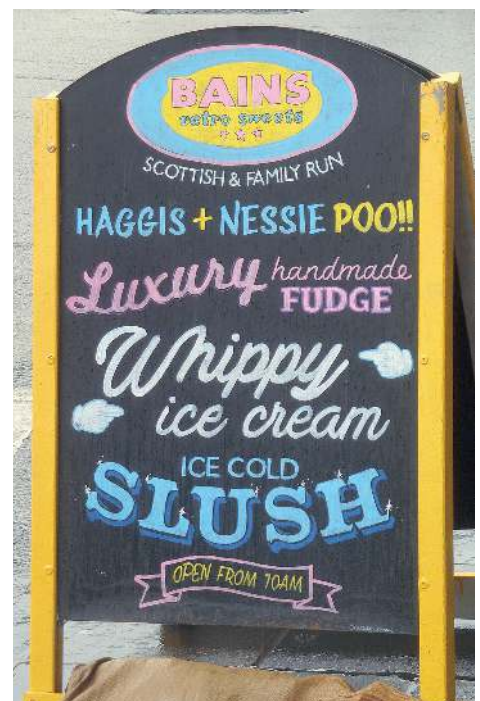 BAINS
retro sweets
SCOTTISH & FAMILY RUN
HAGGIS + NESSIE POO!!
Luxury handmade
FUDGE
Whippy
ice cream
ICE COLD
SLUSH
OPEN FROM 10AM